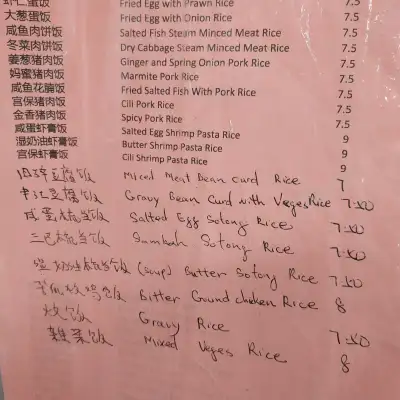 虾仁蛋饭 Fried Egg with Prawn Rice 7.5
大葱蛋饭 Fried Egg with Onion Rice 7.5
咸鱼肉饼饭 Salted Fish Steam Minced Meat Rice 7.5
冬菜肉饼饭 Dry Cabbage Steam Minced Meat Rice 7.5
姜葱猪肉饭 Ginger and Spring Onion Pork Rice 7.5
妈蜜猪肉饭 Marmite Pork Rice 7.5
咸鱼花腩饭 Fried Salted Fish With Pork Rice 7.5
宫保猪肉饭 Cili Pork Rice 7.5
金香猪肉饭 Spicy Pork Rice 7.5
咸蛋虾膏饭 Salted Egg Shrimp Pasta Rice 9
湿奶油虾膏饭 Butter Shrimp Pasta Rice 9
宫保虾膏饭 Cili Shrimp Pasta Rice 9
肉碎豆腐饭 Miced Meat Bean curd Rice 7
豆腐饭 Gravy Bean Curd with Veges Rice 7.50
咸蛋 饭 Salted Egg Sotong Rice 7.50
饭 Sambah Sotong Rice 7.50
饭 (Soup) Butter Sotong Rice 7.50
鸡饭 Bitter Gound chicken Rice 8
饭 Gravy Rice 7.50
雜菜饭 Mixed Veges Rice 8